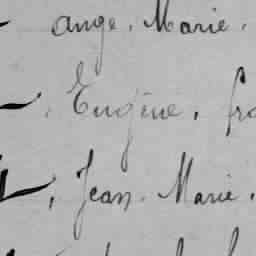 ange. Marie.
Eugène, fra
, Jean. Marie.